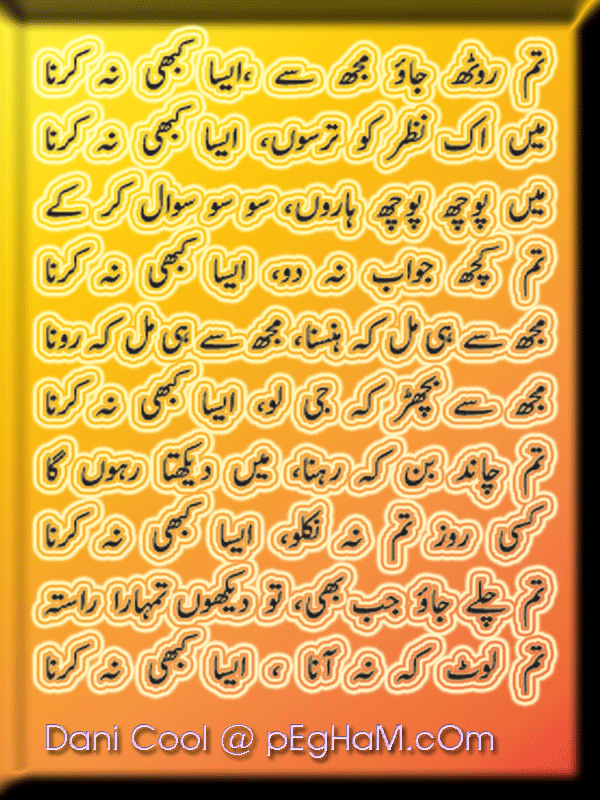 تم روٹھ جاؤ مجھ سے ،ایسا کبھی نہ کرنا
میں اک نظر کو ترسوں، ایسا کبھی نہ کرنا
میں پوچھ پوچھ ہاروں، سو سو سوال کر کے
تم کچھ جواب نہ دو، ایسا کبھی نہ کرنا
مجھ سے ہی مل کہ ہنسنا، مجھ سے ہی مل کہ رونا
مجھ سے بچھڑ کہ جی لو، ایسا کبھی نہ کرنا
تم چاند بن کہ رہنا، میں دیکھتا رہوں گا
کسی روز تم نہ نکلو، ایسا کبھی نہ کرنا
تم چلے جاؤ جب بھی، تو دیکھوں تمہارا راستہ
تم لوٹ کہ نہ آنا ، ایسا کبھی نہ کرنا
Dani Cool @ pEgHaM.cOm